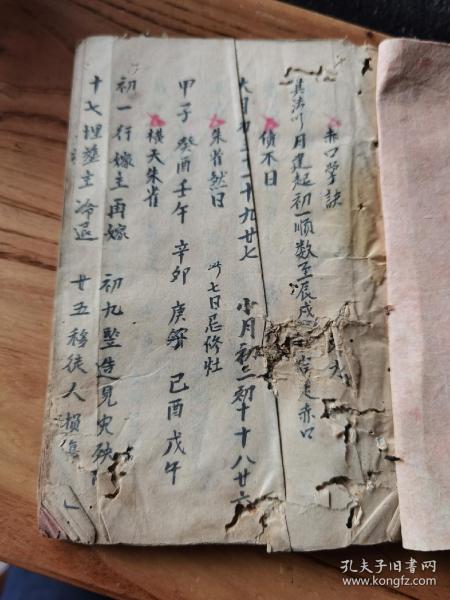 赤口掌訣
其法以月建起初一順数至辰戌 是赤口
債木日
大月初 十九廿七 小月初二初十十八廿六
朱雀煞日 此七日忌修灶
甲子 癸酉 壬午 辛卯 庚 己酉 戊午
橫天朱雀
初一行嫁主再嫁 初九竪造見灾殃
十七埋葬主冷退 廿五移徒人損傷
孔夫子旧书网
www.kongfz.com